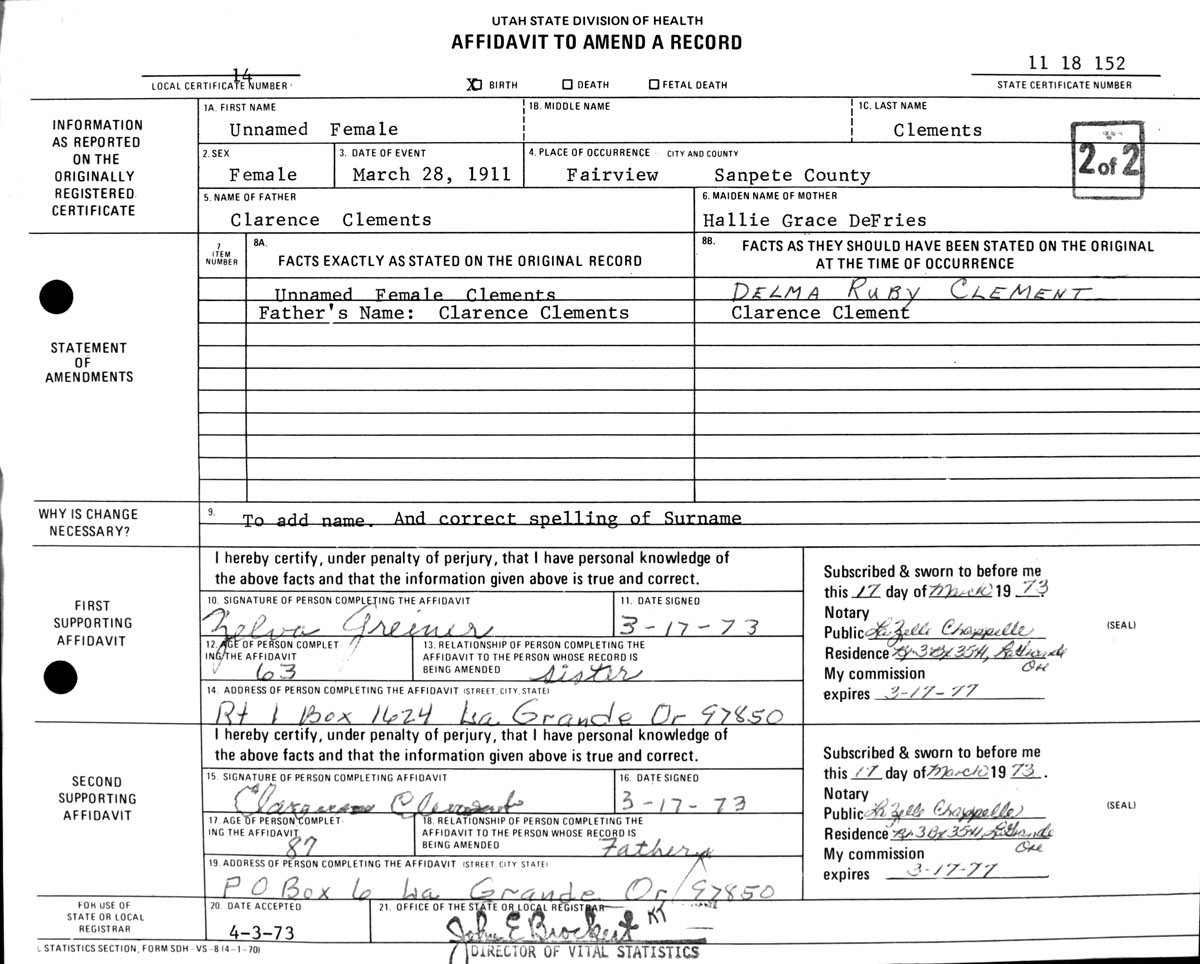 UTAH STATE DIVISION OF HEALTH
AFFIDAVIT TO AMEND A RECORD
14
LOCAL CERTIFICATE NUMBER
X BIRTH DEATH FETAL DEATH
11 18 152
STATE CERTIFICATE NUMBER
INFORMATION
AS REPORTED
ON THE
ORIGINALLY
REGISTERED
CERTIFICATE
1A. FIRST NAME 1B. MIDDLE NAME 1C. LAST NAME
Unnamed Female Clements
2 of 2
2. SEX 3. DATE OF EVENT 4. PLACE OF OCCURRENCE CITY AND COUNTY
Female March 28, 1911 Fairview Sanpete County
5. NAME OF FATHER 6. MAIDEN NAME OF MOTHER
Clarence Clements Hallie Grace DeFries
STATEMENT
OF
AMENDMENTS
7
ITEM
NUMBER
8A.
FACTS EXACTLY AS STATED ON THE ORIGINAL RECORD
8B. FACTS AS THEY SHOULD HAVE BEEN STATED ON THE ORIGINAL
AT THE TIME OF OCCURRENCE
Unnamed Female Clements DELMA RUBY CLEMENT
Father's Name: Clarence Clements Clarence Clement
WHY IS CHANGE
NECESSARY?
9. To add name. And correct spelling of Surname
FIRST
SUPPORTING
AFFIDAVIT
I hereby certify, under penalty of perjury, that I have personal knowledge of
the above facts and that the information given above is true and correct.
10. SIGNATURE OF PERSON COMPLETING THE AFFIDAVIT 11. DATE SIGNED
Zelva Greiner 3-17-73
12. AGE OF PERSON COMPLET-
ING THE AFFIDAVIT
63
13. RELATIONSHIP OF PERSON COMPLETING THE
AFFIDAVIT TO THE PERSON WHOSE RECORD IS
BEING AMENDED sister
14. ADDRESS OF PERSON COMPLETING THE AFFIDAVIT (STREET, CITY, STATE)
Rt 1 Box 1624 La Grande Or 97850
Subscribed & sworn to before me
this 17 day of March 19 73
Notary
Public LaZelle Chappelle (SEAL)
Residence Rr 3 Bx 354, LaGrande
My commission Ore
expires 3-17-77
SECOND
SUPPORTING
AFFIDAVIT
I hereby certify, under penalty of perjury, that I have personal knowledge of
the above facts and that the information given above is true and correct.
15. SIGNATURE OF PERSON COMPLETING AFFIDAVIT 16. DATE SIGNED
Clarence Clement 3-17-73
17. AGE OF PERSON COMPLET-
ING THE AFFIDAVIT
87
18. RELATIONSHIP OF PERSON COMPLETING THE
AFFIDAVIT TO THE PERSON WHOSE RECORD IS
BEING AMENDED Father
19. ADDRESS OF PERSON COMPLETING THE AFFIDAVIT (STREET, CITY, STATE)
P O Box 6 La Grande Or 97850
Subscribed & sworn to before me
this 17 day of March 19 73.
Notary
Public LaZelle Chappelle (SEAL)
Residence Rr 3 Bx 354, LaGrande
My commission Ore
expires 3-17-77
FOR USE OF
STATE OR LOCAL
REGISTRAR
20. DATE ACCEPTED 21. OFFICE OF THE STATE OR LOCAL REGISTRAR
4-3-73 John E Brockert KT
DIRECTOR OF VITAL STATISTICS
L STATISTICS SECTION, FORM SDH-VS-8 (4-1-70)